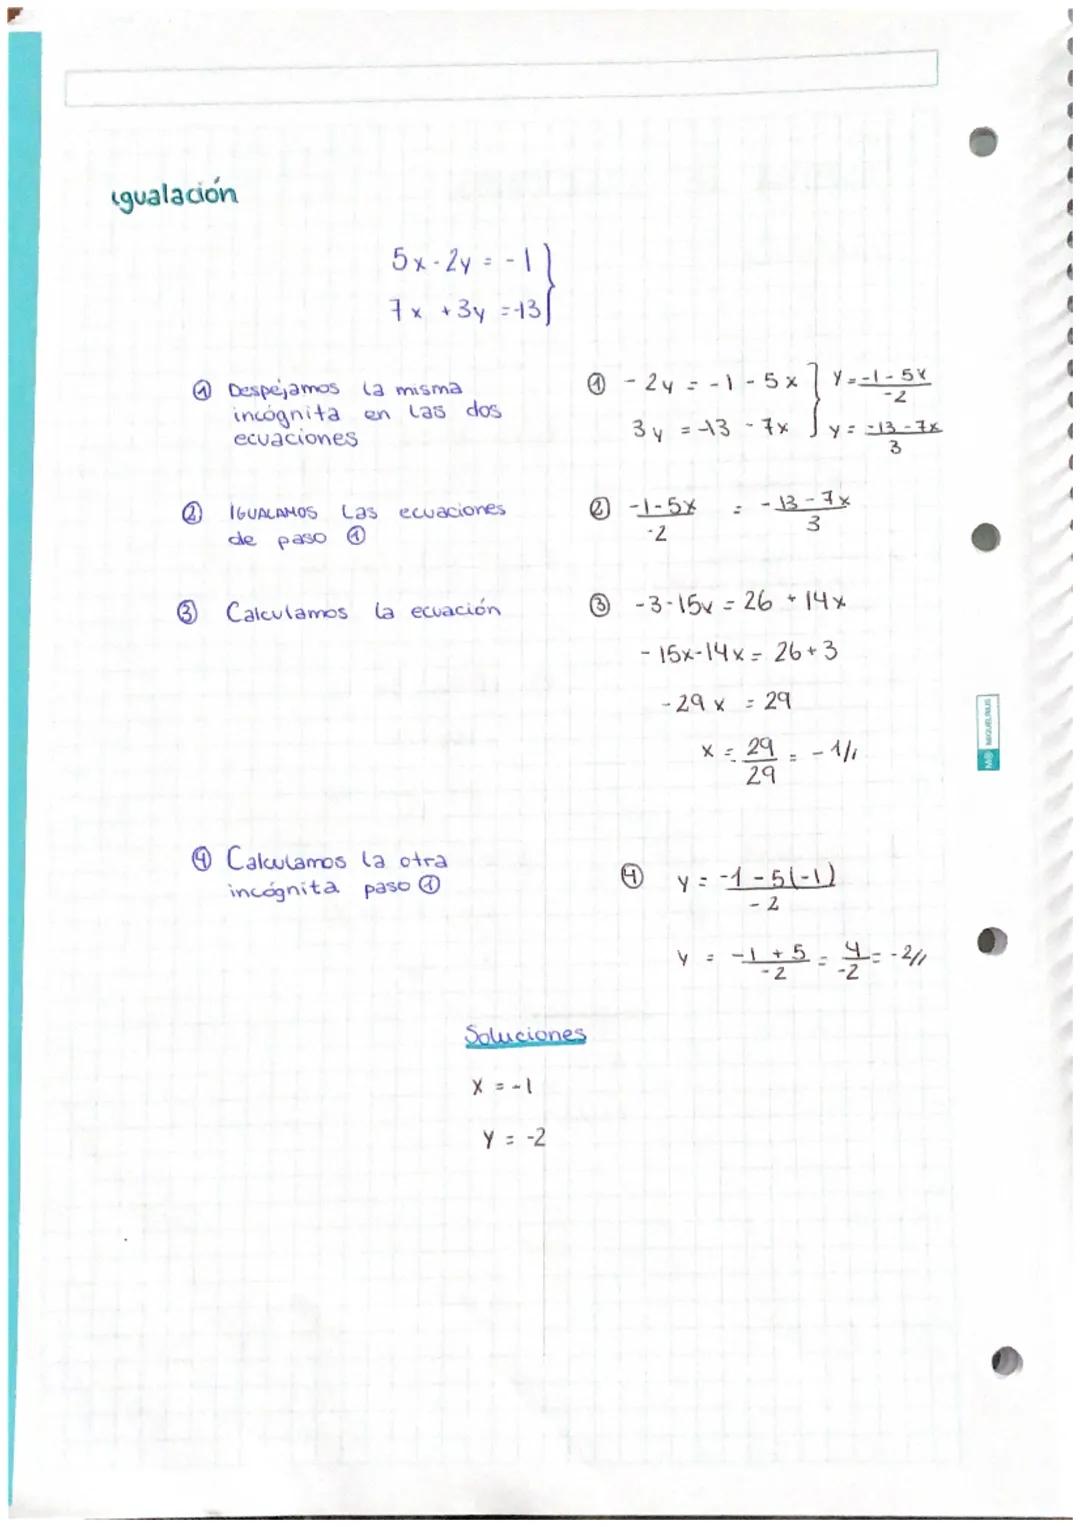 igualación
5x - 2y = -1 }
7x + 3y = -13 }
① Despejamos la misma
incógnita en las dos
ecuaciones
① - 2y = -1 - 5x } y = -1 - 5x / -2
3y = -13 - 7x } y = -13 - 7x / 3
② IGUALAMOS las ecuaciones
de paso ①
② -1 - 5x / -2 = -13 - 7x / 3
③ Calculamos la ecuación
③ -3 - 15x = 26 + 14x
- 15x - 14x = 26 + 3
- 29x = 29
x = - 29 / 29 = - 1//
④ Calculamos la otra
incógnita paso ①
④ y = -1 - 5(-1) / -2
y = -1 + 5 / -2 = 4 / -2 = -2//
Soluciones
x = -1
y = -2
MIQUELRIUS